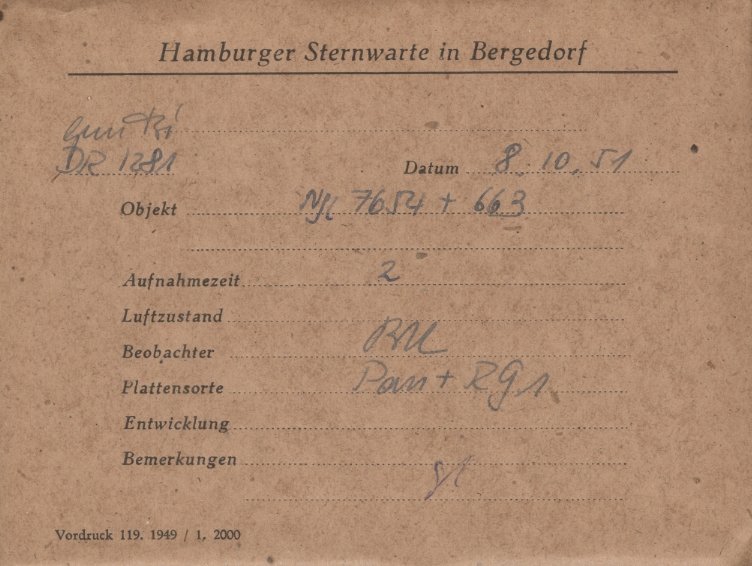 Hamburger Sternwarte in Bergedorf
DR 1281
Datum 8. 10. 51
Objekt 7654 + 663
Aufnahmezeit 2
Luftzustand
Beobachter
Plattensorte Pan + RG1
Entwicklung
Bemerkungen
Vordruck 119. 1949 / 1. 2000